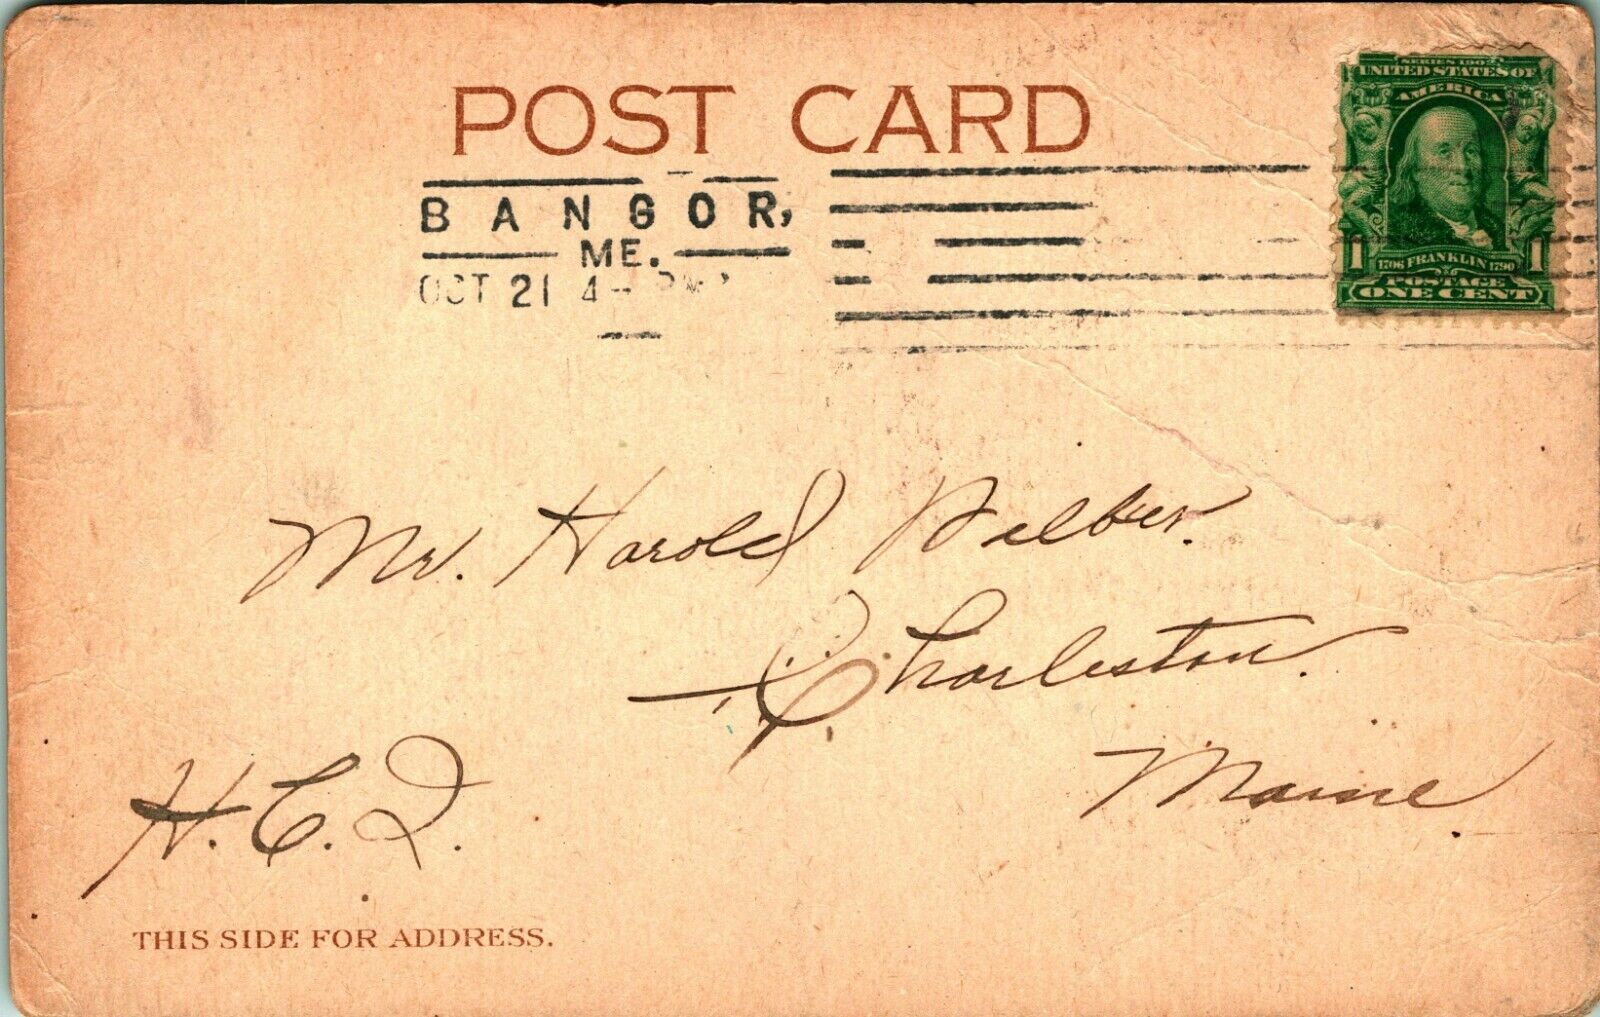 POST CARD
SERIES 1902
UNITED STATES OF
AMERICA
1 1
1706 FRANKLIN 1790
POSTAGE
ONE CENT
BANGOR,
ME.
OCT 21 4- PM
Mr. Harold Wilber.
Charleston.
Maine.
H. C. Q.
THIS SIDE FOR ADDRESS.